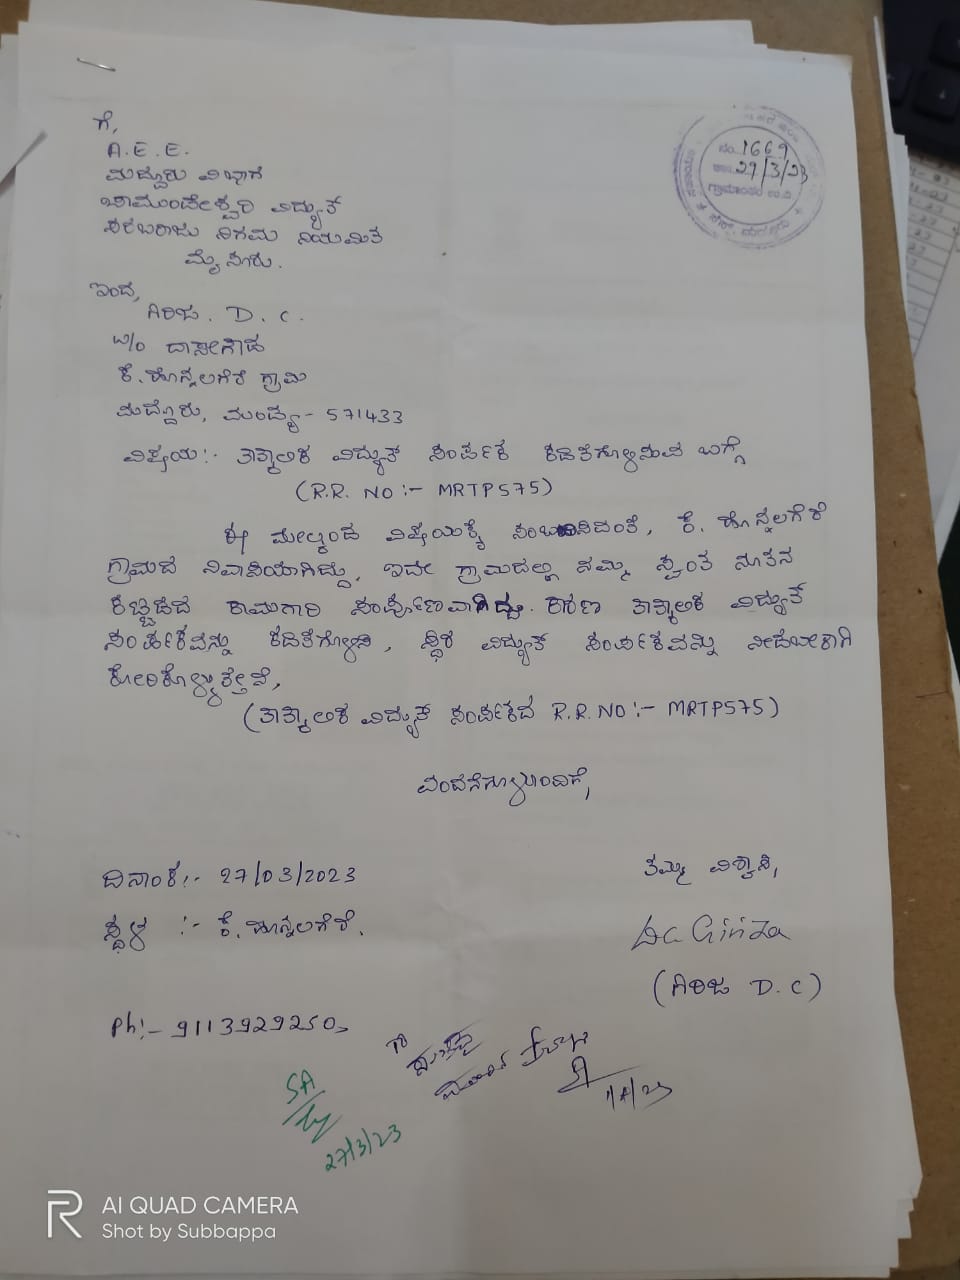 ಗೆ,
A.E.E.
ಮದ್ದೂರು ವಿಭಾಗ
ಚಾಮುಂಡೇಶ್ವರಿ ವಿದ್ಯುತ್
ಸರಬರಾಜು ನಿಗಮ ನಿಯಮಿತ
ಮೈಸೂರು.
ಇಂದ,
ಗಿರಿಜ. D. C.
W/o ದಾಸೇಗೌಡ
ಕೆ. ಹೊನ್ನಲಗೆರೆ ಗ್ರಾಮ
ಮದ್ದೂರು, ಮಂಡ್ಯ - 571433
ವಿಷಯ:- ತಾತ್ಕಾಲಿಕ ವಿದ್ಯುತ್ ಸಂಪರ್ಕ ಕಡಿತಗೊಳಿಸುವ ಬಗ್ಗೆ
(R.R. NO :- MRTP575)
ಈ ಮೇಲ್ಕಂಡ ವಿಷಯಕ್ಕೆ ಸಂಬಂಧಿಸಿದಂತೆ, ಕೆ. ಹೊನ್ನಲಗೆರೆ
ಗ್ರಾಮದ ನಿವಾಸಿಯಾಗಿದ್ದು, ಇದೇ ಗ್ರಾಮದಲ್ಲಿ ನಮ್ಮ ಸ್ವಂತ ನೂತನ
ಕಟ್ಟಡದ ಕಾಮಗಾರಿ ಸಂಪೂರ್ಣವಾಗಿದ್ದು. ಕಾರಣ ತಾತ್ಕಾಲಿಕ ವಿದ್ಯುತ್
ಸಂಪರ್ಕವನ್ನು ಕಡಿತಗೊಳಿಸಿ, ಸ್ಥಿರ ವಿದ್ಯುತ್ ಸಂಪರ್ಕವನ್ನು ನೀಡಬೇಕಾಗಿ
ಕೋರಿಕೊಳ್ಳುತ್ತೇನೆ,
(ತಾತ್ಕಾಲಿಕ ವಿದ್ಯುತ್ ಸಂಪರ್ಕದ R.R.NO :- MRTP575)
ವಂದನೆಗಳೊಂದಿಗೆ,
ದಿನಾಂಕ:- 27/03/2023
ತಮ್ಮ ವಿಶ್ವಾಸಿ,
ಸ್ಥಳ :- ಕೆ. ಹೊನ್ನಲಗೆರೆ.
D.C Girija
(ಗಿರಿಜ D. C)
Ph:- 9113929250
SA
27/3/23
1/4/23
1669
27/3/23
AI QUAD CAMERA
Shot by Subbappa